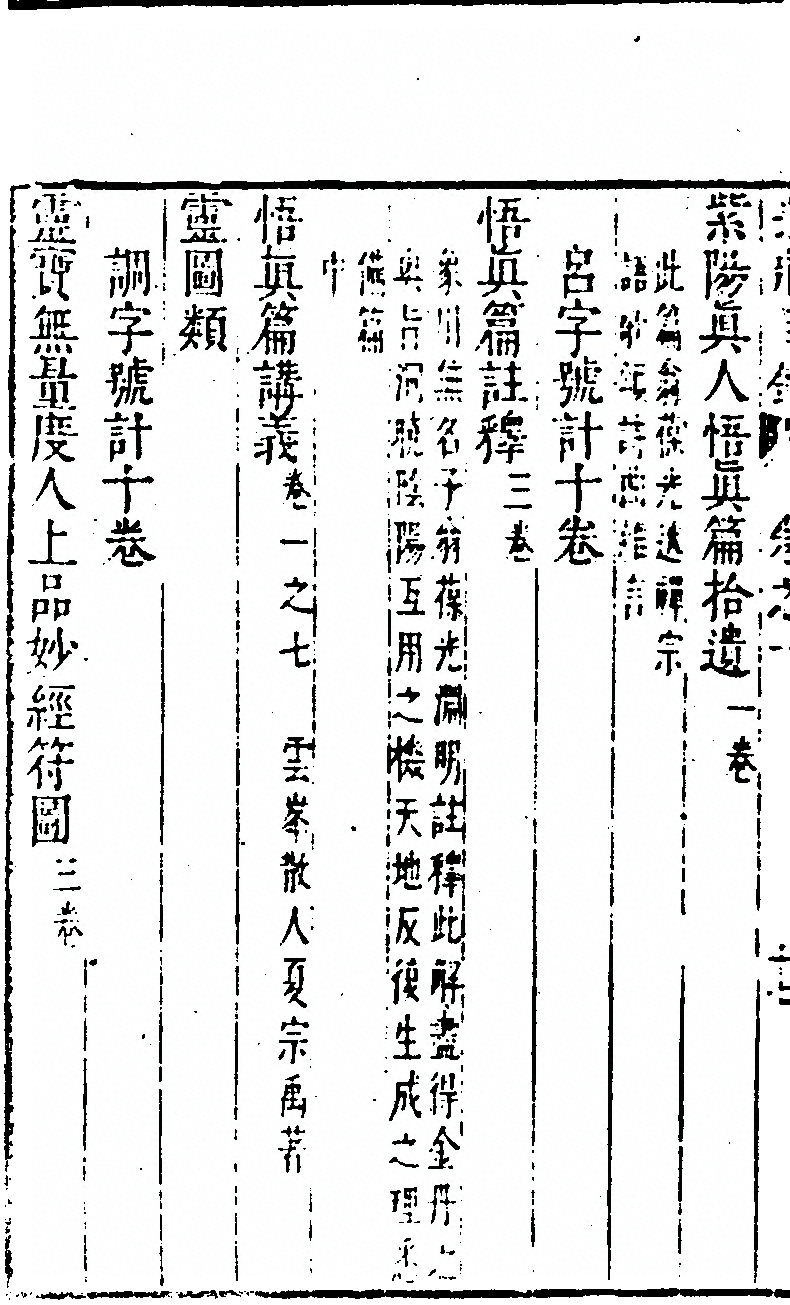 紫陽眞人悟眞篇拾遺 一卷
此篇翁葆光述禪宗
語頌詩曲雜言
呂字號計十卷
悟眞篇註釋 三卷
象川無名子翁葆光淵明註釋此解盡得金丹之
奥旨洞曉陰陽互用之機天地反復生成之理悉
備篇
中
悟眞篇講義 卷一之七 雲峯散人夏宗禹著
靈圖類
調字號計十卷
靈寶無量度人上品妙經符圖 三卷